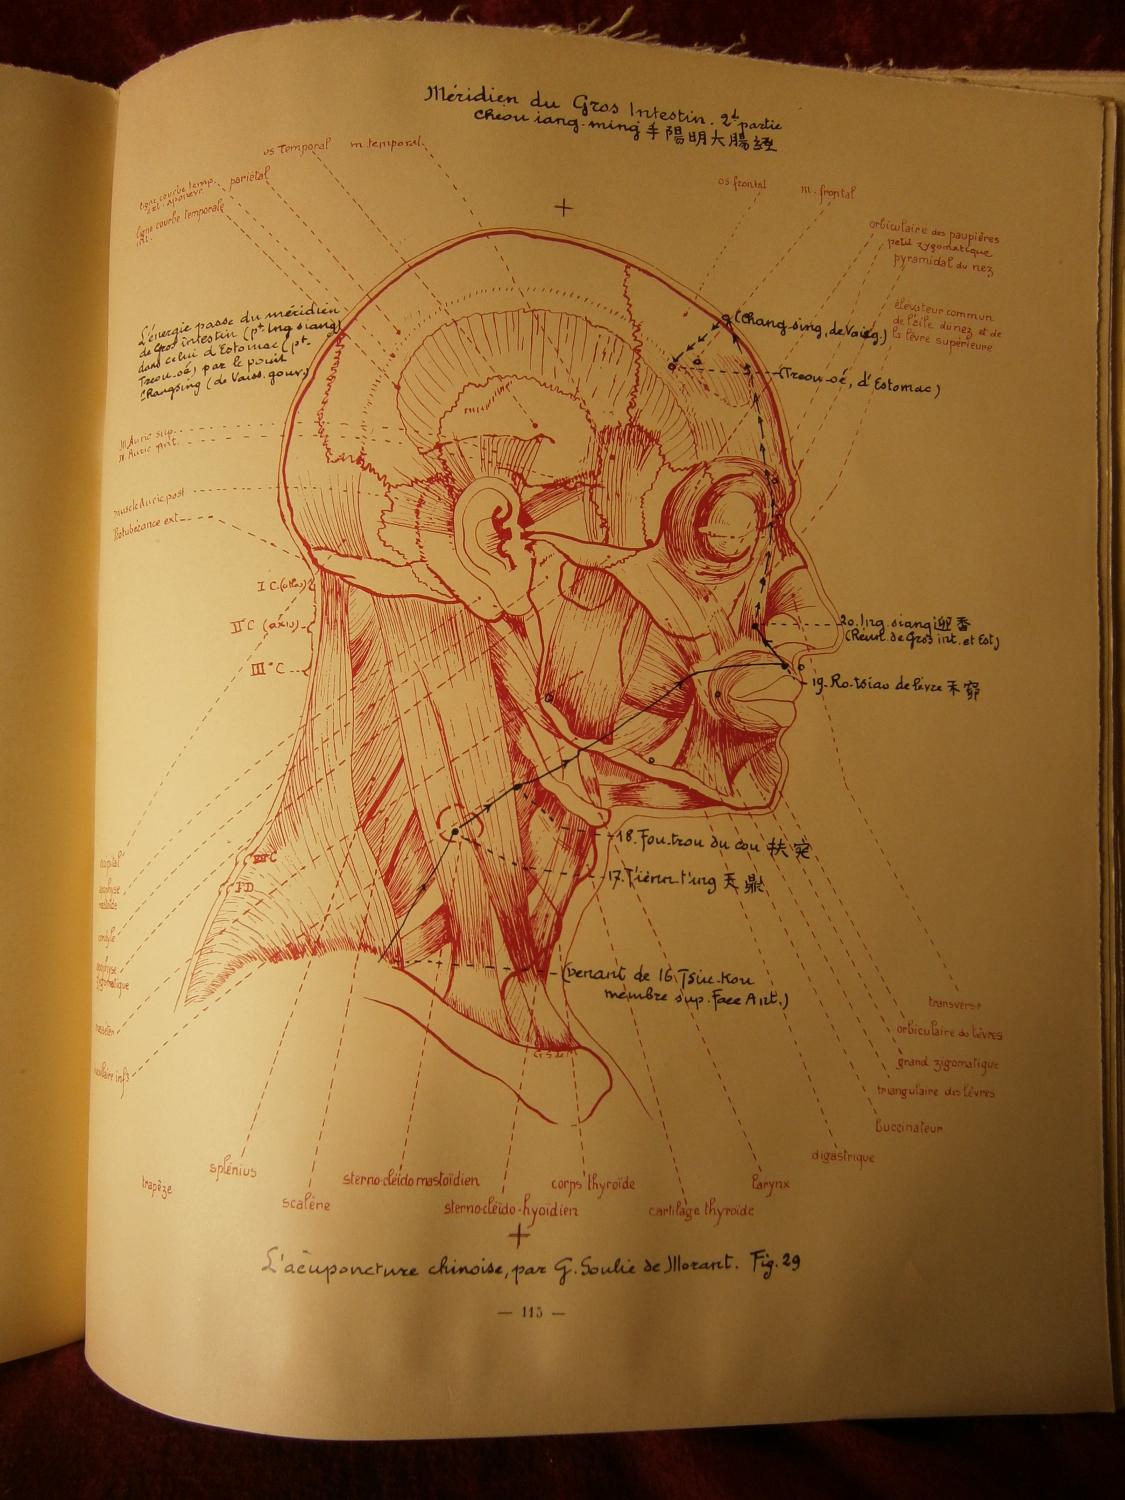 Méridien du Gros Intestin. 2d partie
Chéou iang-ming 手陽明大腸経
os Temporal
m. temporal.
os frontal
m. frontal
ligne courbe temp.
pariétal
ligne courbe temporale
int.
orbiculaire des paupières
petit zygomatique
pyramidal du nez
élévateur commun
de l'aile du nez et de
la lèvre supérieure
L'énergie passe du méridien
de Gros intestin (pt. Ing siang)
dans celui d'Estomac (pt.
Treou-oé) par le point
Changsing (de Vaiss. gouv.)
(Chang sing, de Vais g.)
(Treou-oé, d'Estomac)
M. Auric sup.
M. Auric Ant.
muscle Auric. post
Protubérance ext
I C. (atlas)
II C (axis)
III C
20. Ing. siang 迎香
(Réun. de Gros int. et Est)
19. Ro-tsiao de lèvre 禾窌
18. Fou-trou du cou 扶突
17. Tiénn-t'ing 天鼎
I D
apophyse
condyle
apophyse
zygomatique
(venant de 16. Tsiu-kou
membre sup. Face Ant.)
transverse
orbiculaire des lèvres
grand zigomatique
triangulaire des lèvres
buccinateur
digastrique
larynx
cartilage thyroïde
corps thyroïde
sterno-cléïdo-hyoïdien
sterno-cléïdo mastoïdien
scalène
splénius
trapèze
L'acuponcture chinoise, par G. Soulié de Morant. Fig. 29
— 115 —